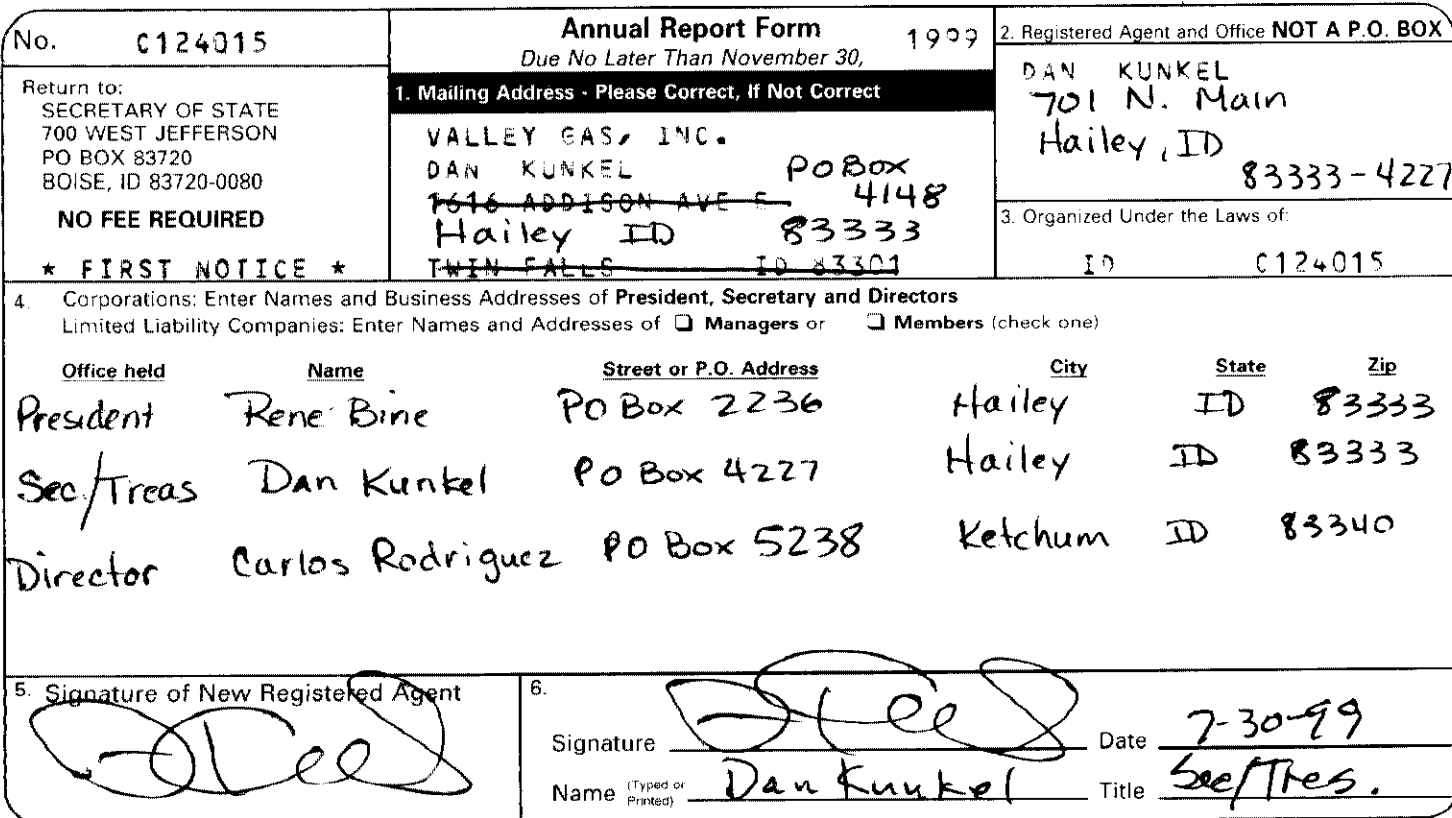 No. C124015
Annual Report Form 1999
Due No Later Than November 30,
Return to:
SECRETARY OF STATE
700 WEST JEFFERSON
PO BOX 83720
BOISE, ID 83720-0080
NO FEE REQUIRED
* FIRST NOTICE *
1. Mailing Address - Please Correct, If Not Correct
VALLEY GAS, INC.
DAN KUNKEL PO Box
1616 ADDISON AVE E 4148
Hailey ID 83333
TWIN FALLS ID 83301
2. Registered Agent and Office NOT A P.O. BOX
DAN KUNKEL
701 N. Main
Hailey, ID
83333-4227
3. Organized Under the Laws of:
ID C124015
4. Corporations: Enter Names and Business Addresses of President, Secretary and Directors
Limited Liability Companies: Enter Names and Addresses of ❑ Managers or ❑ Members (check one)
Office held Name Street or P.O. Address City State Zip
President Rene Bine PO Box 2236 Hailey ID 83333
Sec/Treas Dan Kunkel PO Box 4227 Hailey ID 83333
Director Carlos Rodriguez PO Box 5238 Ketchum ID 83340
5. Signature of New Registered Agent
6.
Signature Date 7-30-99
Name (Typed or Printed) Dan Kunkel Title Sec/Tres.